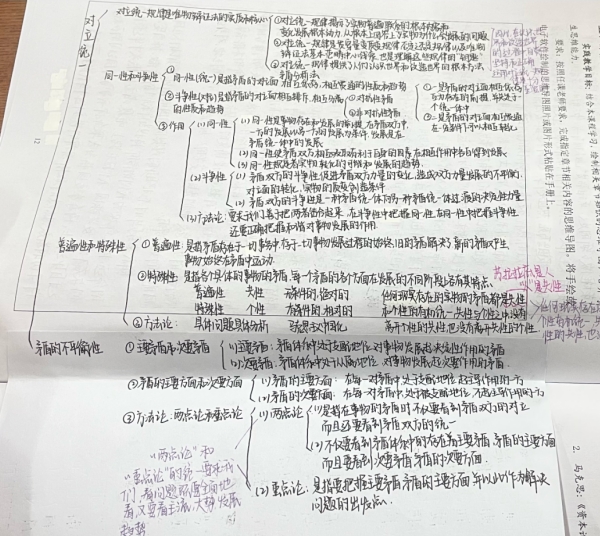 对立统一
对立统一规律是唯物辩证法的实质和核心
①对立统一规律揭示了事物普遍联系的根本内容和
变化发展的根本动力，从根本上回答了事物为什么会发展的问题
同一性和斗争性
①同一性(统一)是指矛盾的对立面相互依存、相互贯通的性质和趋势
②斗争性(对立)是指矛盾的对立面相互排斥、相互分离的性质和趋势
①对抗性矛盾
②非对抗性矛盾
③作用
(1)同一性
(1)同一性是事物存在和发展的前提，在矛盾双方中，
一方的发展以另一方的发展为条件，发展是在
矛盾统一体中的发展
(2)同一性使矛盾双方相互吸取有利于自身的因素，在相互作用中各自得到发展
(3)同一性规定着事物转化的可能和发展的趋势。
(2)斗争性
(1)矛盾双方的斗争性促进矛盾双方力量的变化，造成双方力量发展的不平衡，
对立面的转化，事物的质变创造条件
(2)矛盾双方的斗争性是一种矛盾统一体向另一种矛盾统一体过渡的决定性力量
(3)方法论：要求我们善于把两者结合起来，在斗争性中把握同一性，在同一性中把握斗争性
还要正确把握和谐对事物发展的作用。
普遍性和特殊性
①普遍性：是指矛盾存在于一切事物中，存在于一切事物发展过程的始终，旧的矛盾解决了，新的矛盾又产生，
事物始终在矛盾中运动
②特殊性：是指各个具体的事物的矛盾、每一个矛盾的各个方面在发展的不同阶段上各有其特点。
普遍性 共性 无条件的、绝对的
特殊性 个性 有条件的、相对的
任何现实存在的事物的矛盾都是共性
和个性的有机统一，共性寓于个性之中，没有
离开个性的共性，也没有离开共性的个性
苏格拉底是人
人是共性
③方法论：具体问题具体分析
矛盾的不平衡性
①主要矛盾和次要矛盾
(1)主要矛盾：矛盾体系中处于支配地位，对事物发展起决定性作用的矛盾
(2)次要矛盾：矛盾体系中处于从属地位，对事物发展
②矛盾的主要方面和次要方面
(1)矛盾的主要方面：在每一对矛盾中处于支配地位，起主导作用的一方
(2)矛盾的次要方面：在每一对矛盾中处于被支配地位，不起主导作用的一方
③方法论：两点论和重点论
(1)两点论
(1)是指在事物的矛盾时，不仅要看到矛盾双方的对立
而且还要看到矛盾双方的统一
(2)不仅要看到矛盾体系中的存在着主要矛盾、矛盾的主要方面
而且要看到次要矛盾、矛盾的次要方面。
(2)重点论：是指要把握主要矛盾、矛盾的主要方面，并以此作为解决
问题的出发点。
“两点论”和
“重点论”的统一要求我
们，看问题既要全面地
看，又要看主流、大势、发展
趋势
12
实践教学目标：结合本课程学习，绘制相关章节
要求：按照任课老师要求，完成指定章节相关内容的思维导图。将手绘
电子软件绘制的思维导图图片或图片形式粘贴在手册上。
2. 马克思：《资本论